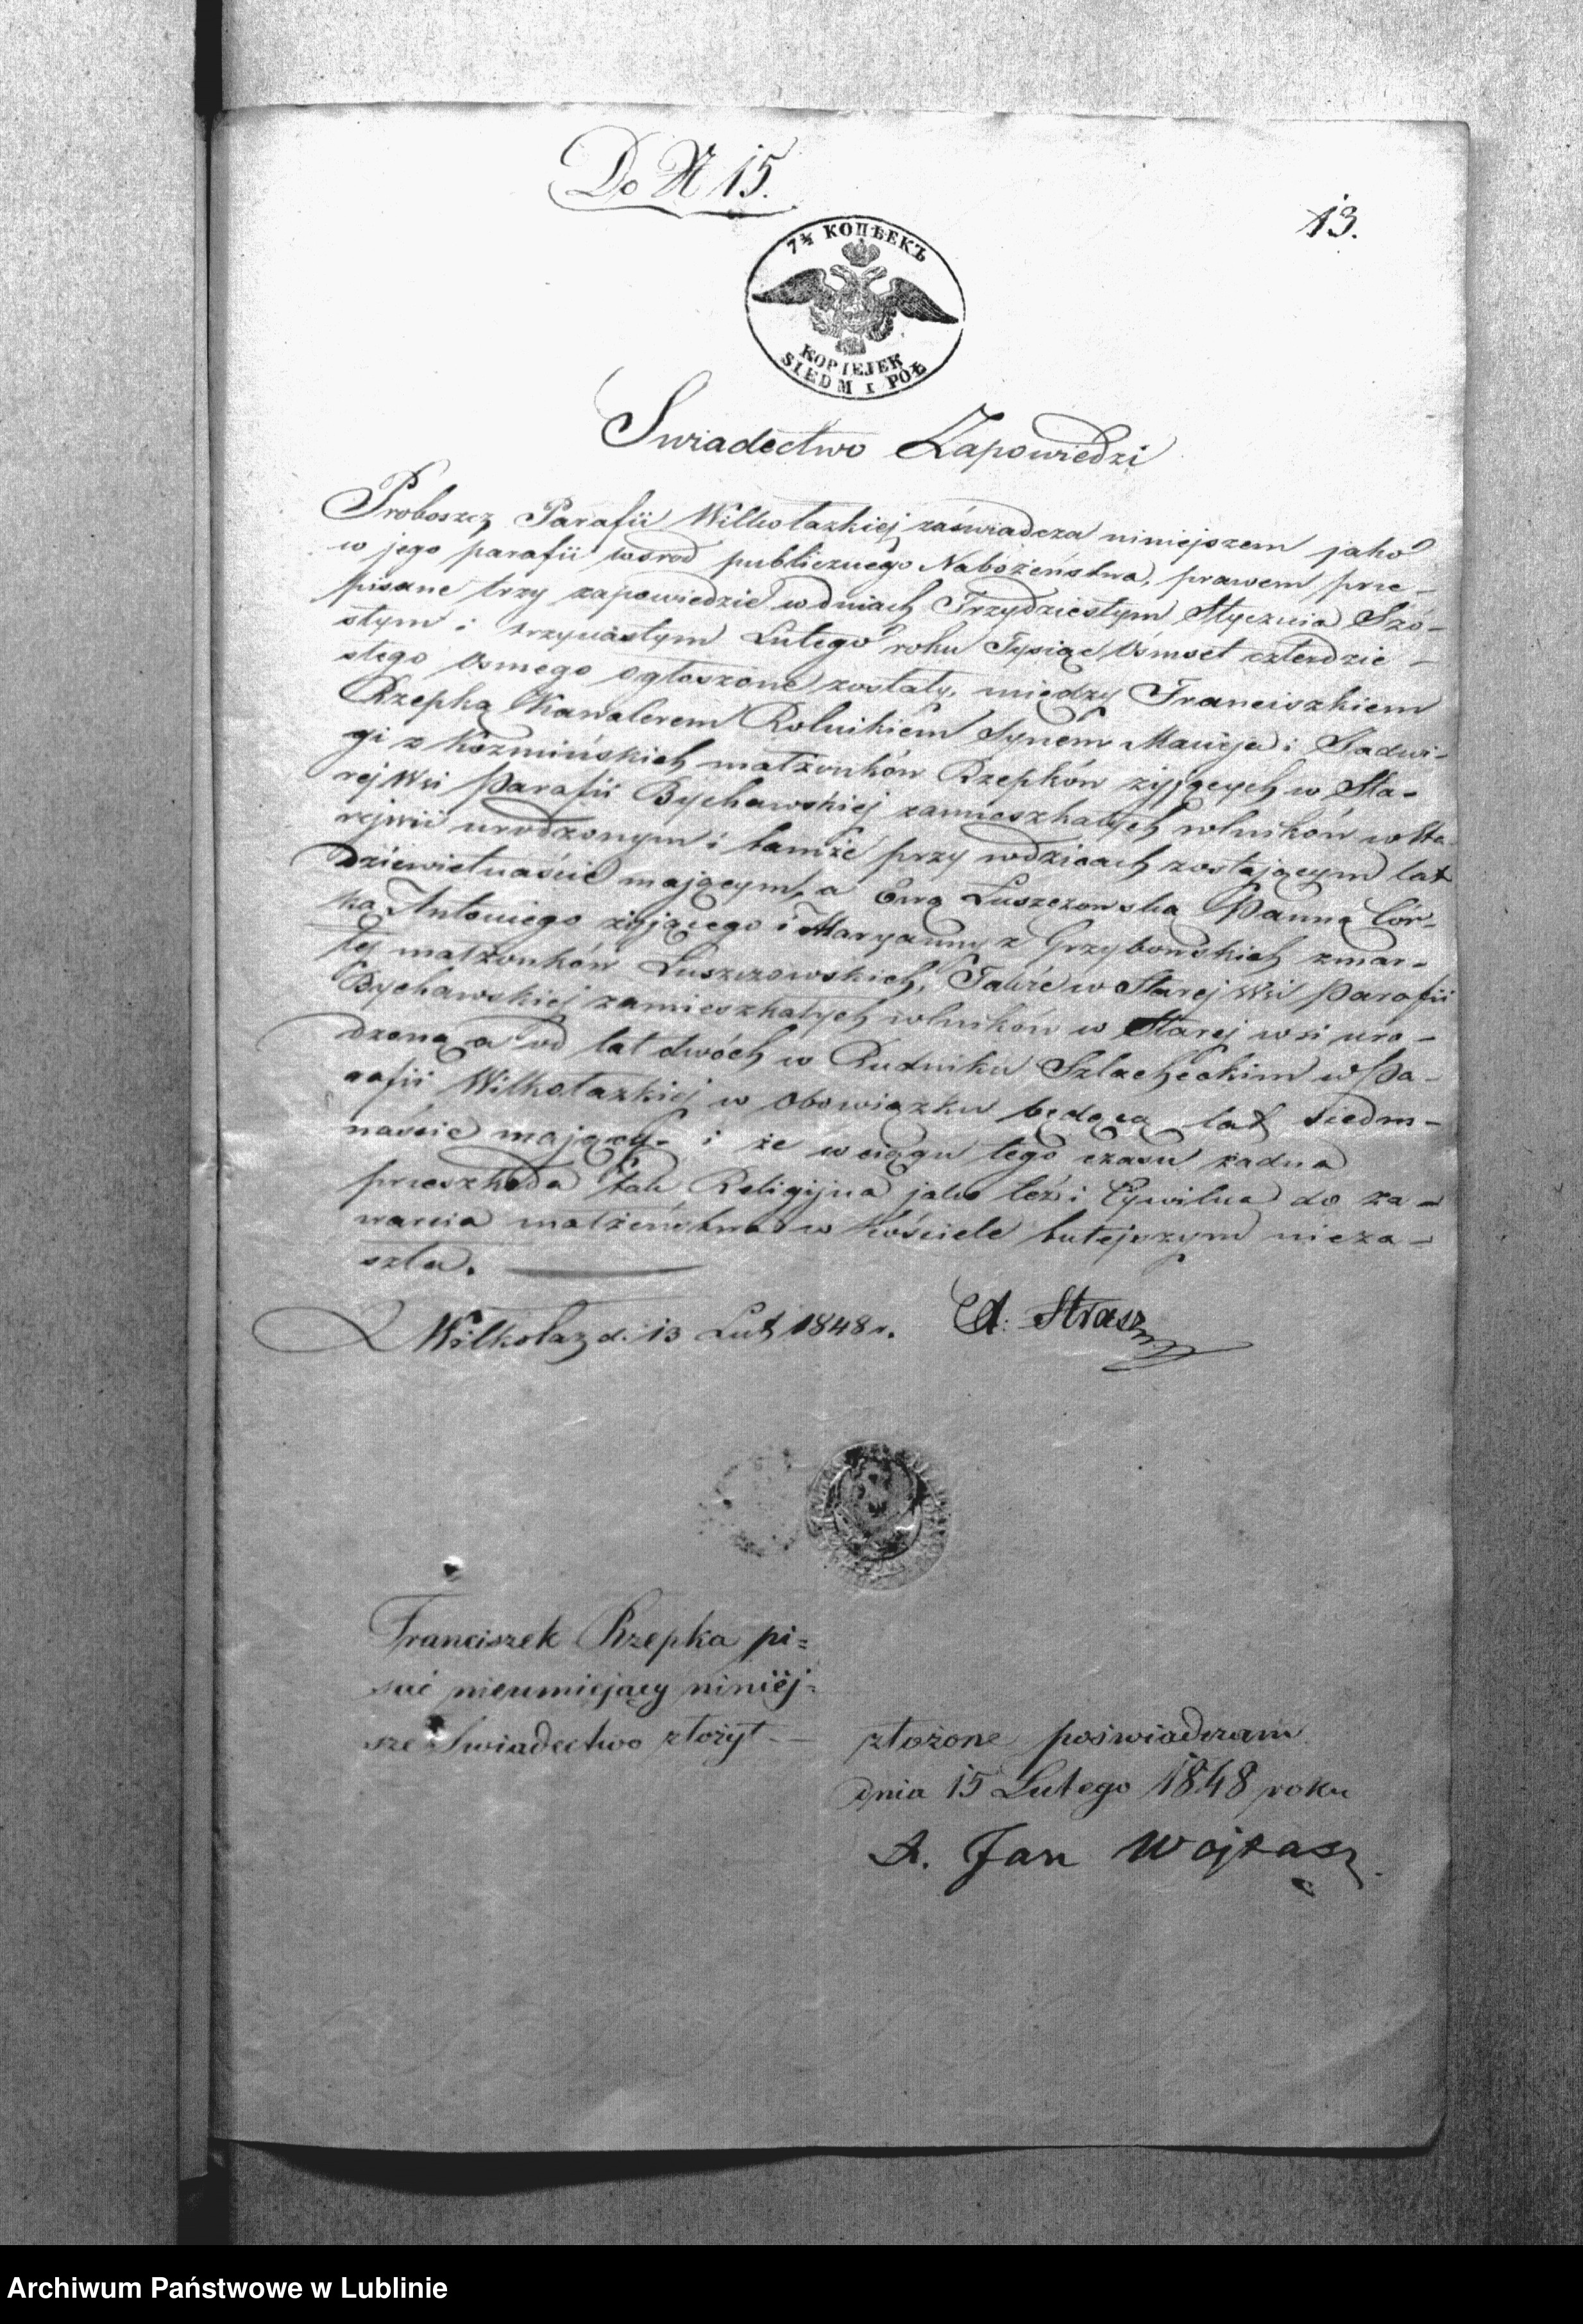 Do N 15.
13.
7½ КОПѢЕКЪ
KOPIEJEK
SIEDM I PÓŁ
Swiadectwo Zapowiedzi
Proboszcz Parafii Wilkołazkiej zaświadcza niniejszem jako
w jego parafii wsrod publicznego Nabożeństwa, prawem prze-
pisane trzy zapowiedzie w dniach Trzydziestym Stycznia Szó-
stym i trzynastym Lutego roku Tysiąc Ośmset czterdzie-
stego osmego ogłoszone zostały, między Franciszkiem
Rzepką Kawalerem Rolnikiem Synem Macieja i Jadwi-
gi z Kozmińskich małżonków Rzepków żyjących w Sta-
rej Wsi Parafii Bychawskiej zamieszkałych rolników w Sta-
rejwsi urodzonym i tamże przy rodzicach zostającym lat
dziewietnaście mającym, a Ewą Luszczowską Panną Cór-
ką Antoniego żyjącego i Maryanny z Grzybowskich zmar-
łej małżonków Luszczowskich, Także w Starej Wsi Parafii
Bychawskiej zamieszkałych rolników w Starej wsi uro-
dzoną a od lat dwóch w Rudniku Szlacheckim w Pa-
rafii Wilkołazkiej w obowiązku będącą lat siedm-
naście mającą. i że w ciągu tego czasu żadna
przeszkoda tak Religijna jako też i Cywilna do za-
warcia małżeństwa w Kościele tutejszym nieza-
szła.
Wilkołaz d. 13 Lut 1848 r. X. A. Strasz
Franciszek Rzepka pi=
sać nieumiejący niniéj=
sze Swiadectwo złożył -
złożone poświadczam
dnia 15 Lutego 1848 roku
X. Jan Wojtasz
Archiwum Państwowe w Lublinie